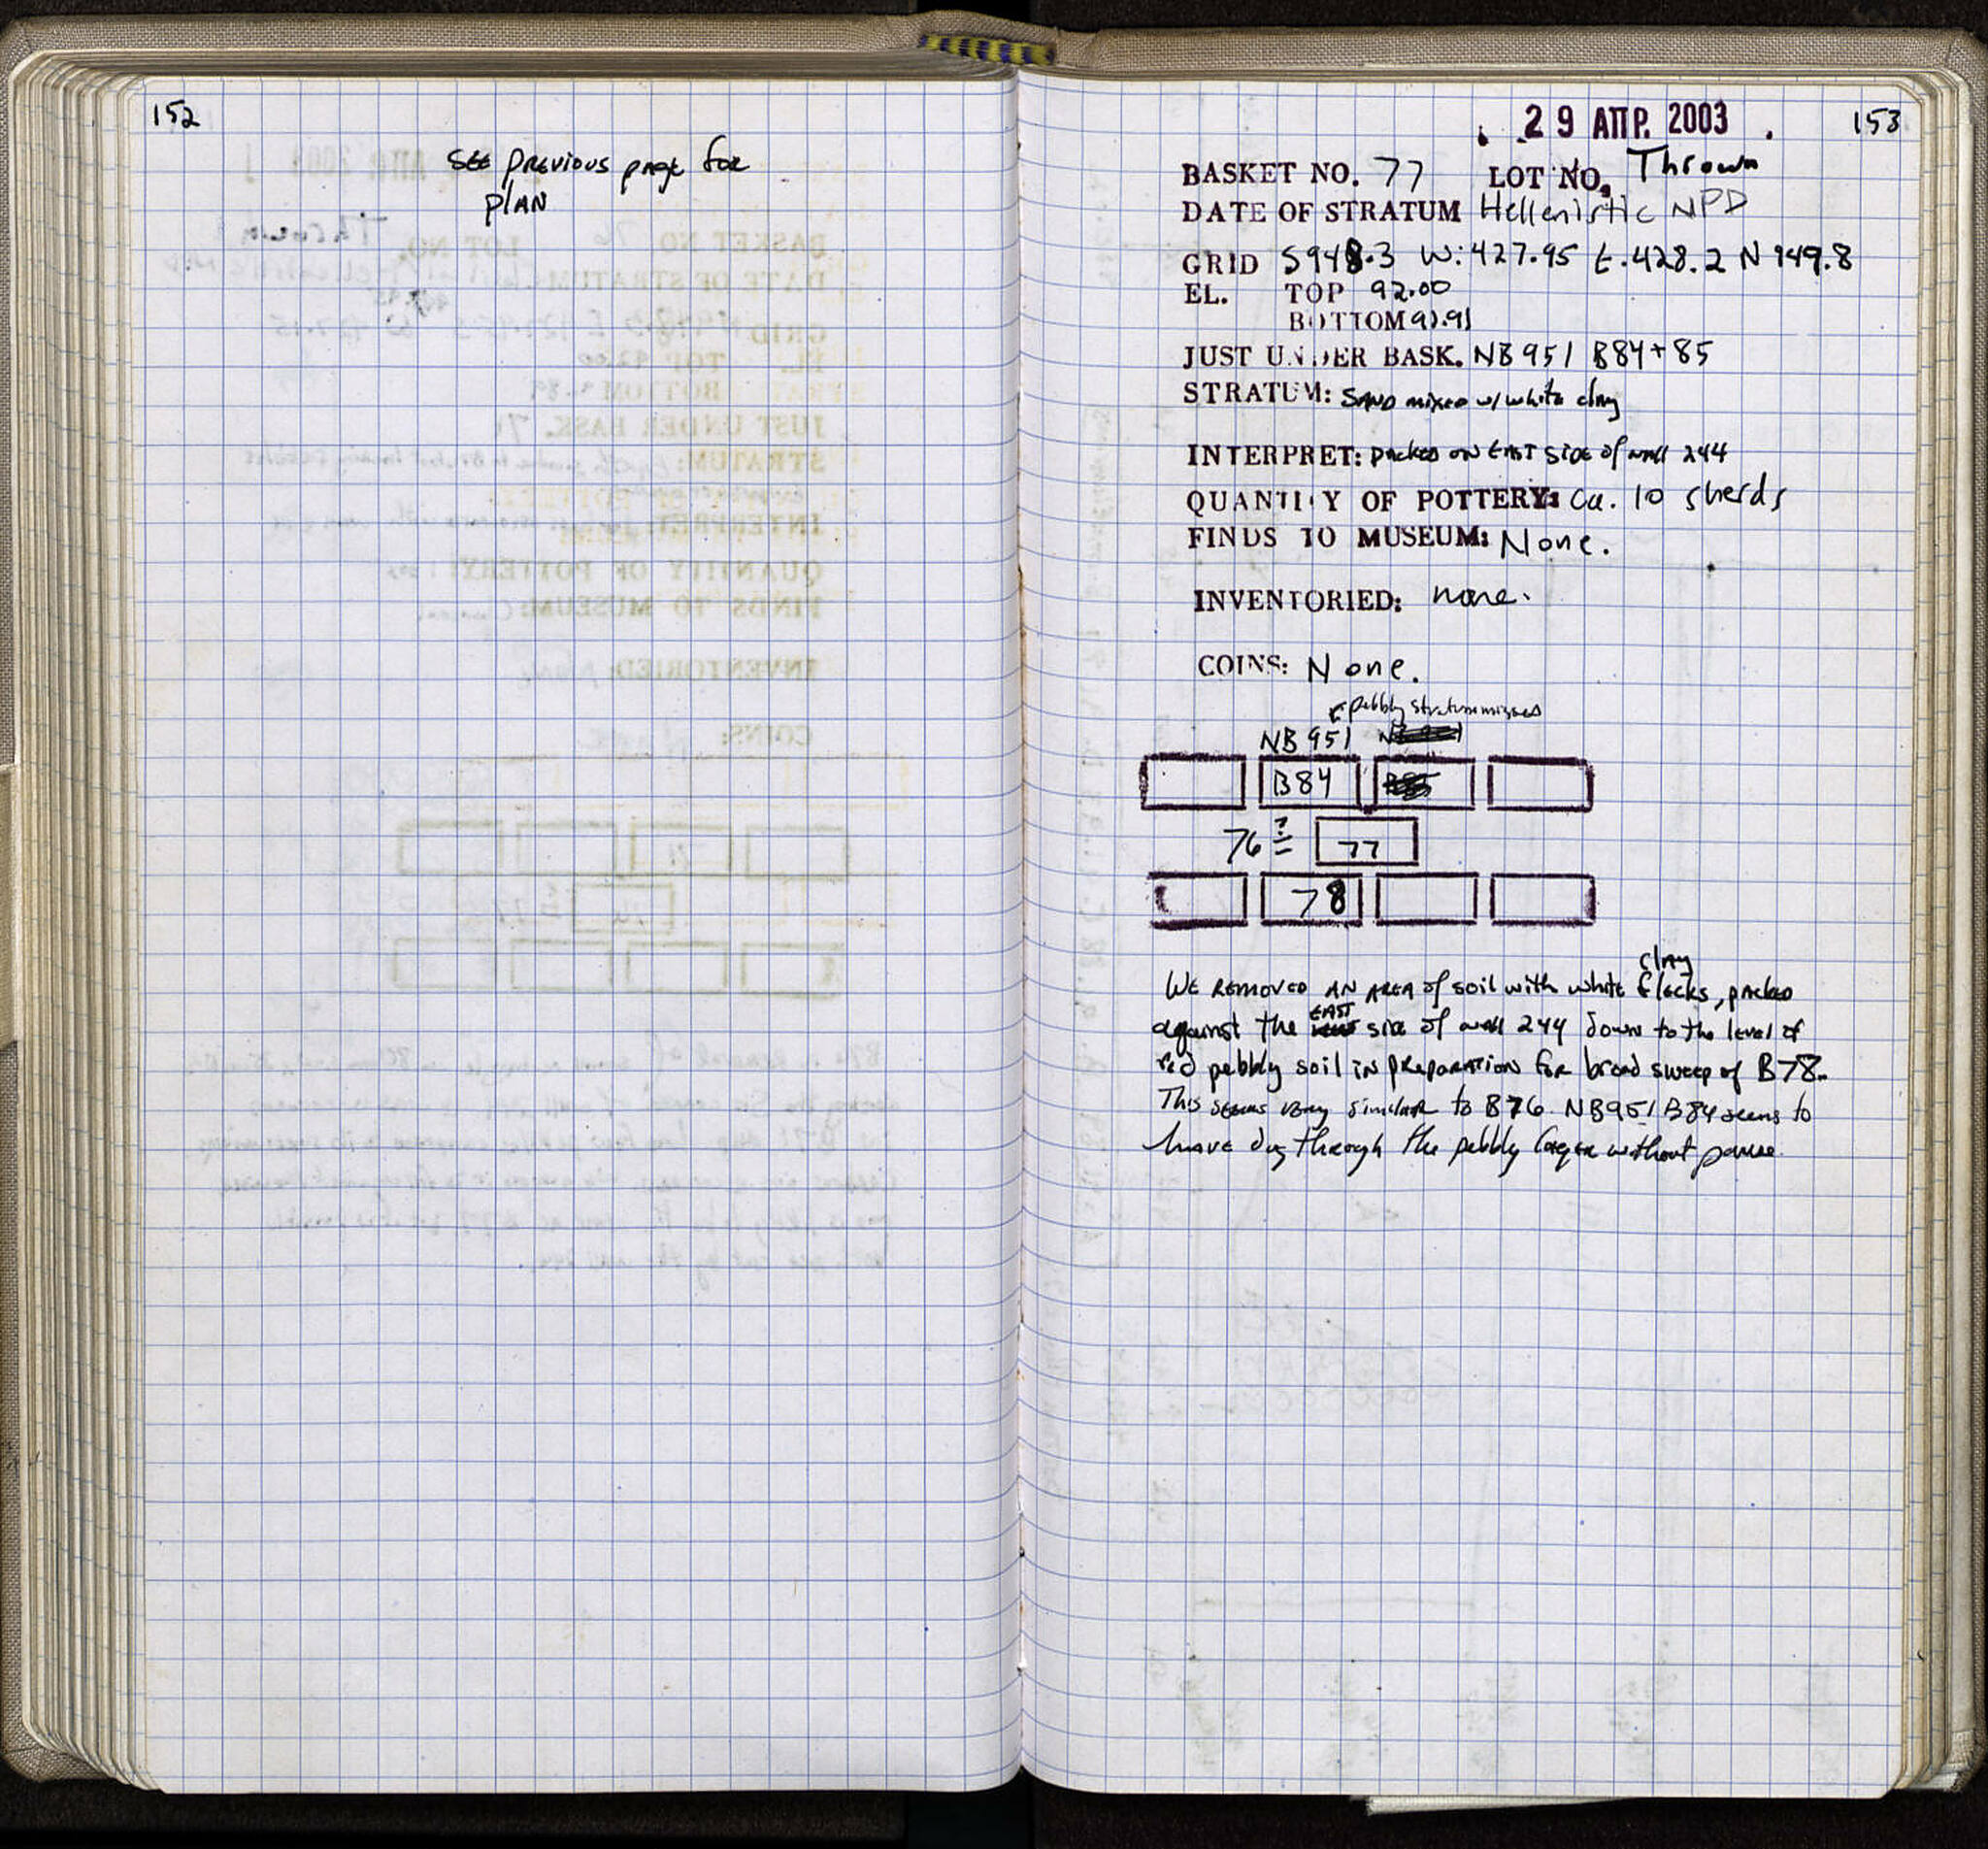 152
SEE PREVIOUS PAGE FOR
PLAN
29 ΑΠΡ. 2003
153
BASKET NO. 77 LOT NO. Thrown
DATE OF STRATUM Hellenistic NPD
GRID S948.3 W: 427.95 E. 428.2 N 949.8
EL. TOP 92.00
BOTTOM 91.91
JUST UNDER BASK. NB951 B84+85
STRATUM: SAND mixed w/ white clay
INTERPRET: packed on EAST side of wall 244
QUANTITY OF POTTERY: ca. 10 sherds
FINDS TO MUSEUM: None.
INVENTORIED: none.
COINS: None.
pebbly stratum missed
NB 951
B84
76 ?= 77
78
WE REMOVED AN AREA of soil with white clay flecks, packed
against the EAST side of wall 244 down to the level of
red pebbly soil in preparation for broad sweep of B78.
This seems very similar to B76. NB951 B84 seems to
have dug through the pebbly layer without pause.